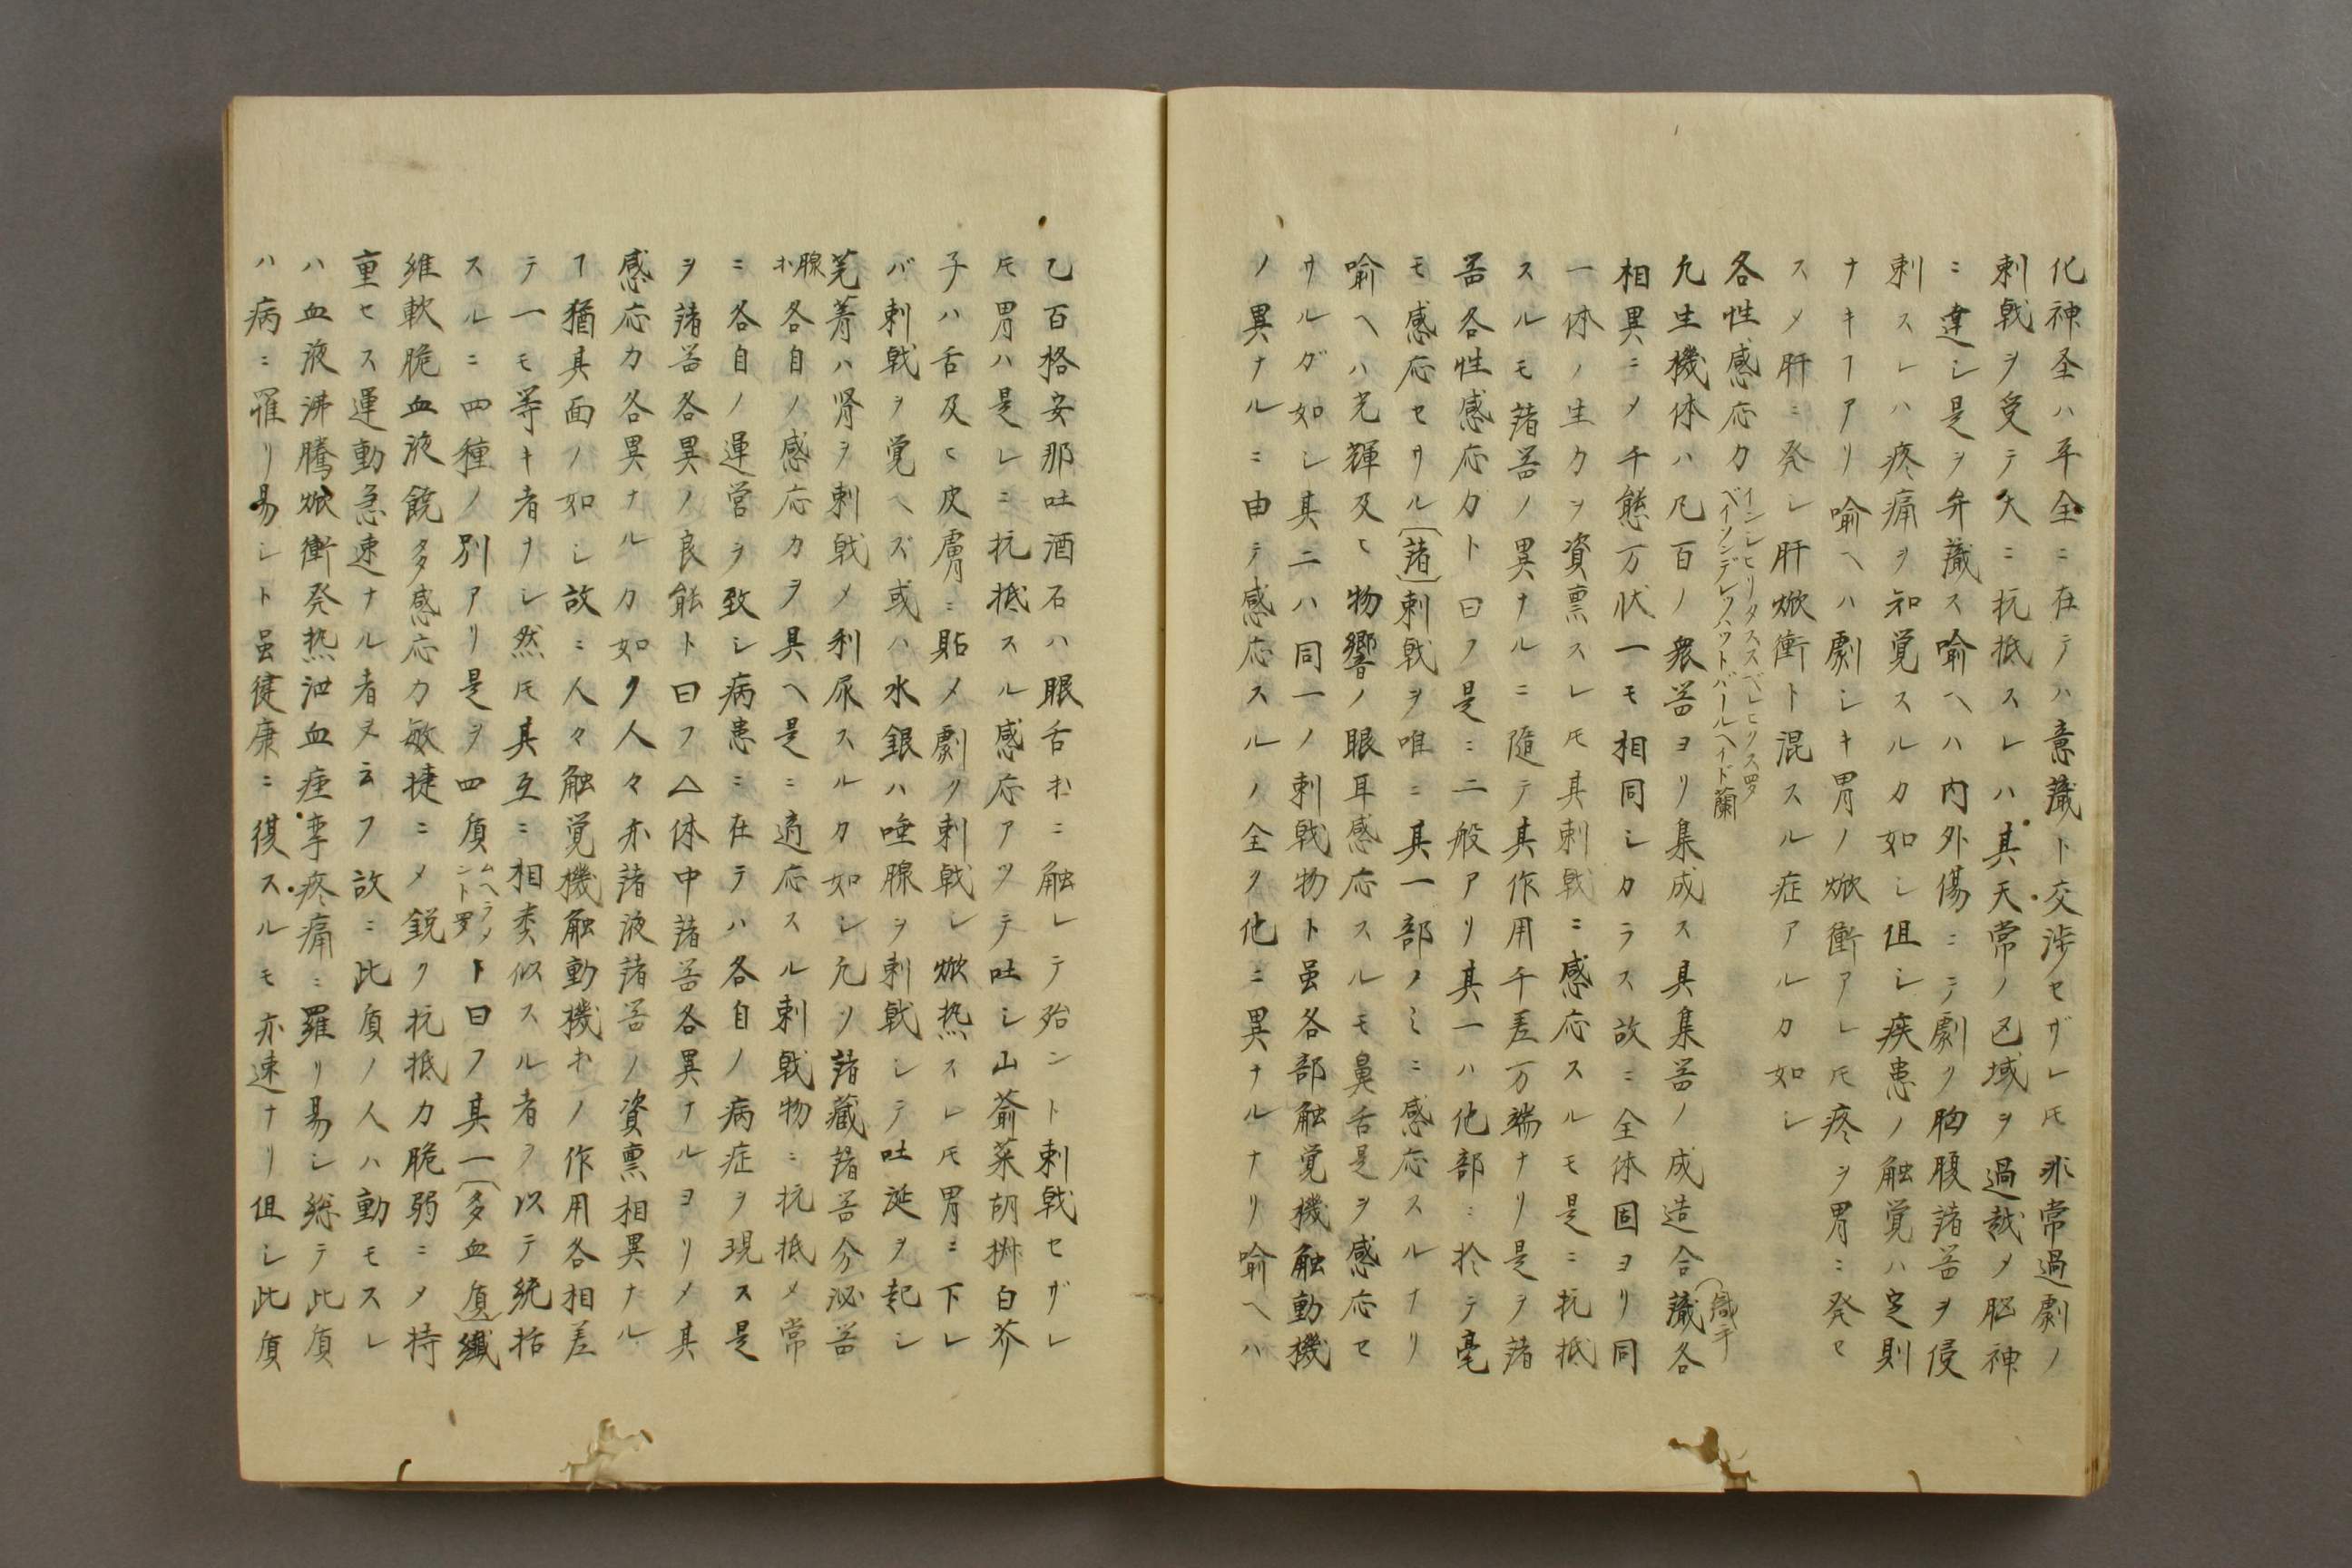 化神圣ハ平全ニ在テハ意識ト交渉セザレ𪜈非常過劇ノ
刺戟ヲ受テ大ニ抗抵スレハ其天常ノ区域ヲ過越メ脳神
ニ達シ是ヲ弁識ス喩ヘハ内外傷ニテ劇ク胸腹諸器ヲ侵
刺スレハ疼痛ヲ知覚スルカ如シ但シ疾患ノ触覚ハ定則
ナキヿアリ喩ヘハ劇シキ胃ノ焮衝アレ𪜈疼ヲ胃ニ発セ
スメ肝ニ発シ肝焮衝ト混スル症アルカ如シ
各性感応力 インシヒリタススベレヒリス羅 ベイソンデレハウトバールヘイド蘭
凢生機体ハ凡百ノ衆器ヨリ集成ス具集器ノ成造合識各
相異ニメ千態万状一モ相同シカラス故ニ全体固ヨリ同
一体ノ生力ヲ資禀スレ𪜈其刺戟ニ感応スルモ是ニ抗抵
スルモ諸器ノ異ナルニ随テ其作用千差万端ナリ是ヲ諸
器各性感応力ト曰フ是ニ二般アリ其一ハ他部ニ於テ毫
モ感応セサル〔諸〕刺戟ヲ唯ニ其一部ノミニ感応スルナリ
喩ヘハ光輝及ヒ物響ノ眼耳感応スルモ鼻舌是ヲ感応セ
サルガ如シ其二ハ同一ノ刺戟物ト虽各部触覚機触動機
ノ異ナルニ由テ感応スルノ全ク他ニ異ナルナリ喩ヘハ
乙百格安那吐酒石ハ眼舌ホニ触レテ殆ント刺戟セザレ
𪜈胃ハ是レニ抗抵スル感応アツテ吐シ山葵菜胡椒白芥
子ハ舌及ヒ皮膚ニ貼メ劇ク刺戟シ焮热スレ𪜈胃ニ下レ
バ刺戟ヲ覚ヘズ或ハ水銀ハ唾腺ヲ刺戟シテ吐涎ヲ起シ
芫菁ハ肾ヲ刺戟メ利尿スルカ如シ凢ソ諸蔵諸器分泌器
腺ホ各自ノ感応力ヲ具ヘ是ニ適応スル刺戟物ニ抗抵メ常
ニ各自ノ運営ヲ致シ病患ニ在テハ各自ノ病症ヲ現ス是
ヲ諸器各異ノ良能ト曰フ△体中諸器各異ナルヨリメ其
感応力各異ナルカ如ク人々亦諸液諸器ノ資禀相異ナル
ヿ猶其面ノ如シ故ニ人々触覚機触動機ホノ作用各相差
テ一モ等キ者ナシ然𪜈其互ニ相类似スル者ヲ以テ統括
スルニ四種ノ別アリ是ヲ四質 ムヘラメント羅 ト曰フ其一〔多血質〕纖
維軟脆血液饒多感応力敏捷ニメ鋭ク抗抵力脆弱ニメ持
重セス運動急速ナル者ヲ云フ故ニ此質ノ人ハ動モスレ
ハ血液沸騰焮衝発热泄血痙挛疼痛ニ罹リ易シ総テ此質
ハ病ニ罹リ易シト虽健康ニ復スルモ亦速ナリ但シ此質